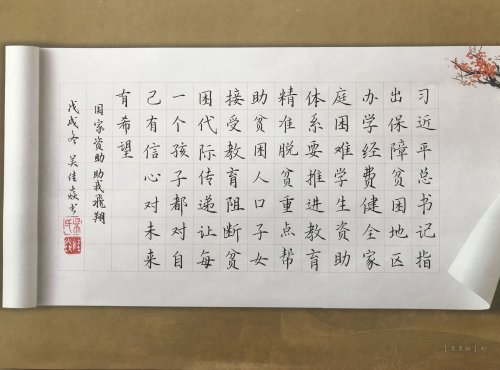 习近平总书记指
出保障贫困地区
办学经费健全家
庭困难学生资助
体系要推进教育
精准脱贫重点帮
助贫困人口子女
接受教育阻断贫
困代际传递让每
一个孩子都对自
己有信心对未来
有希望
国家资助 助我飛翔
戊戌冬 吴佳焱书